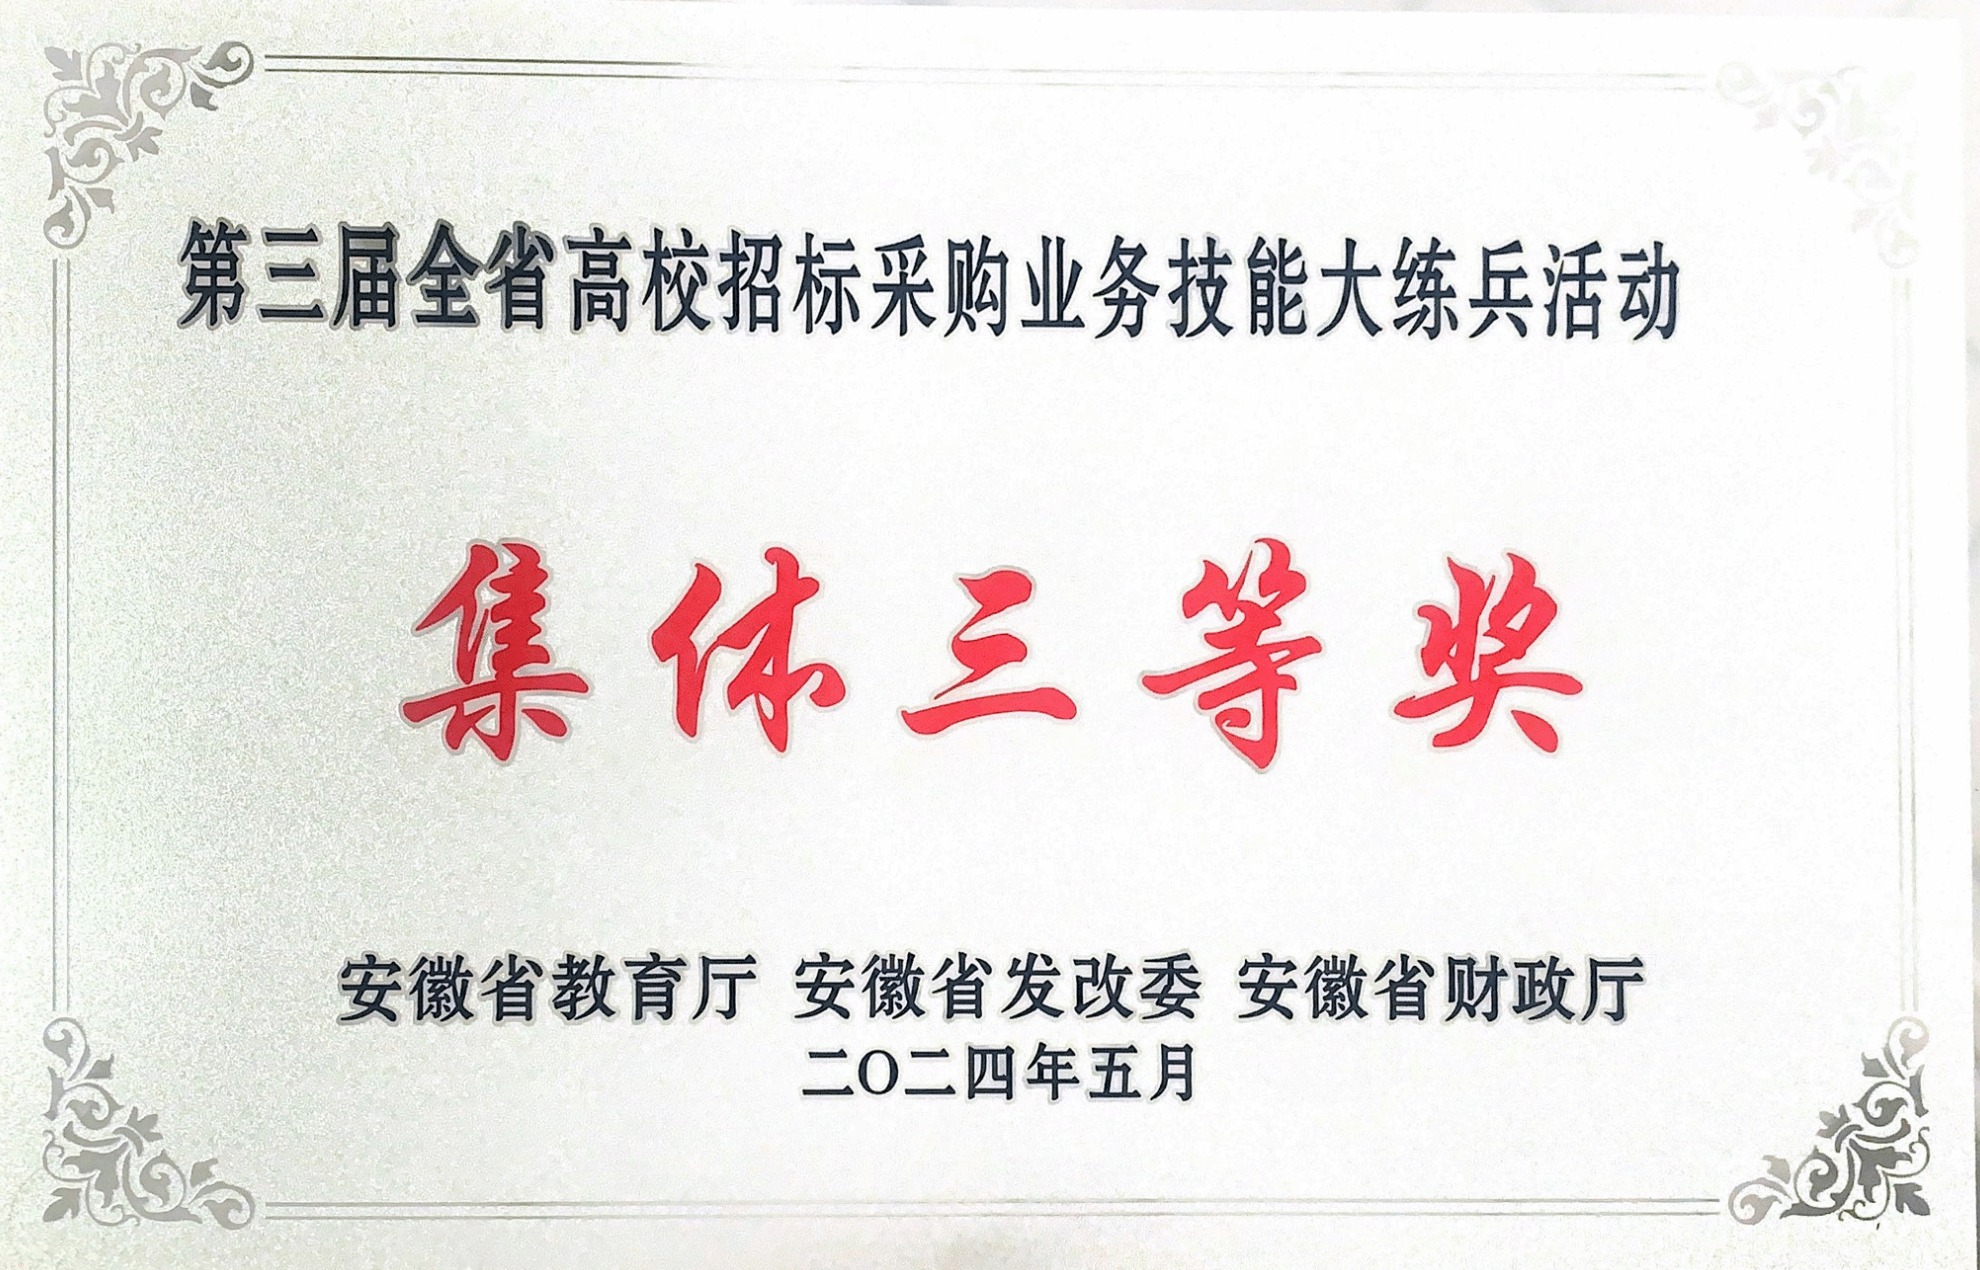 第三届全省高校招标采购业务技能大练兵活动
集体三等奖
安徽省教育厅 安徽省发改委 安徽省财政厅
二〇二四年五月